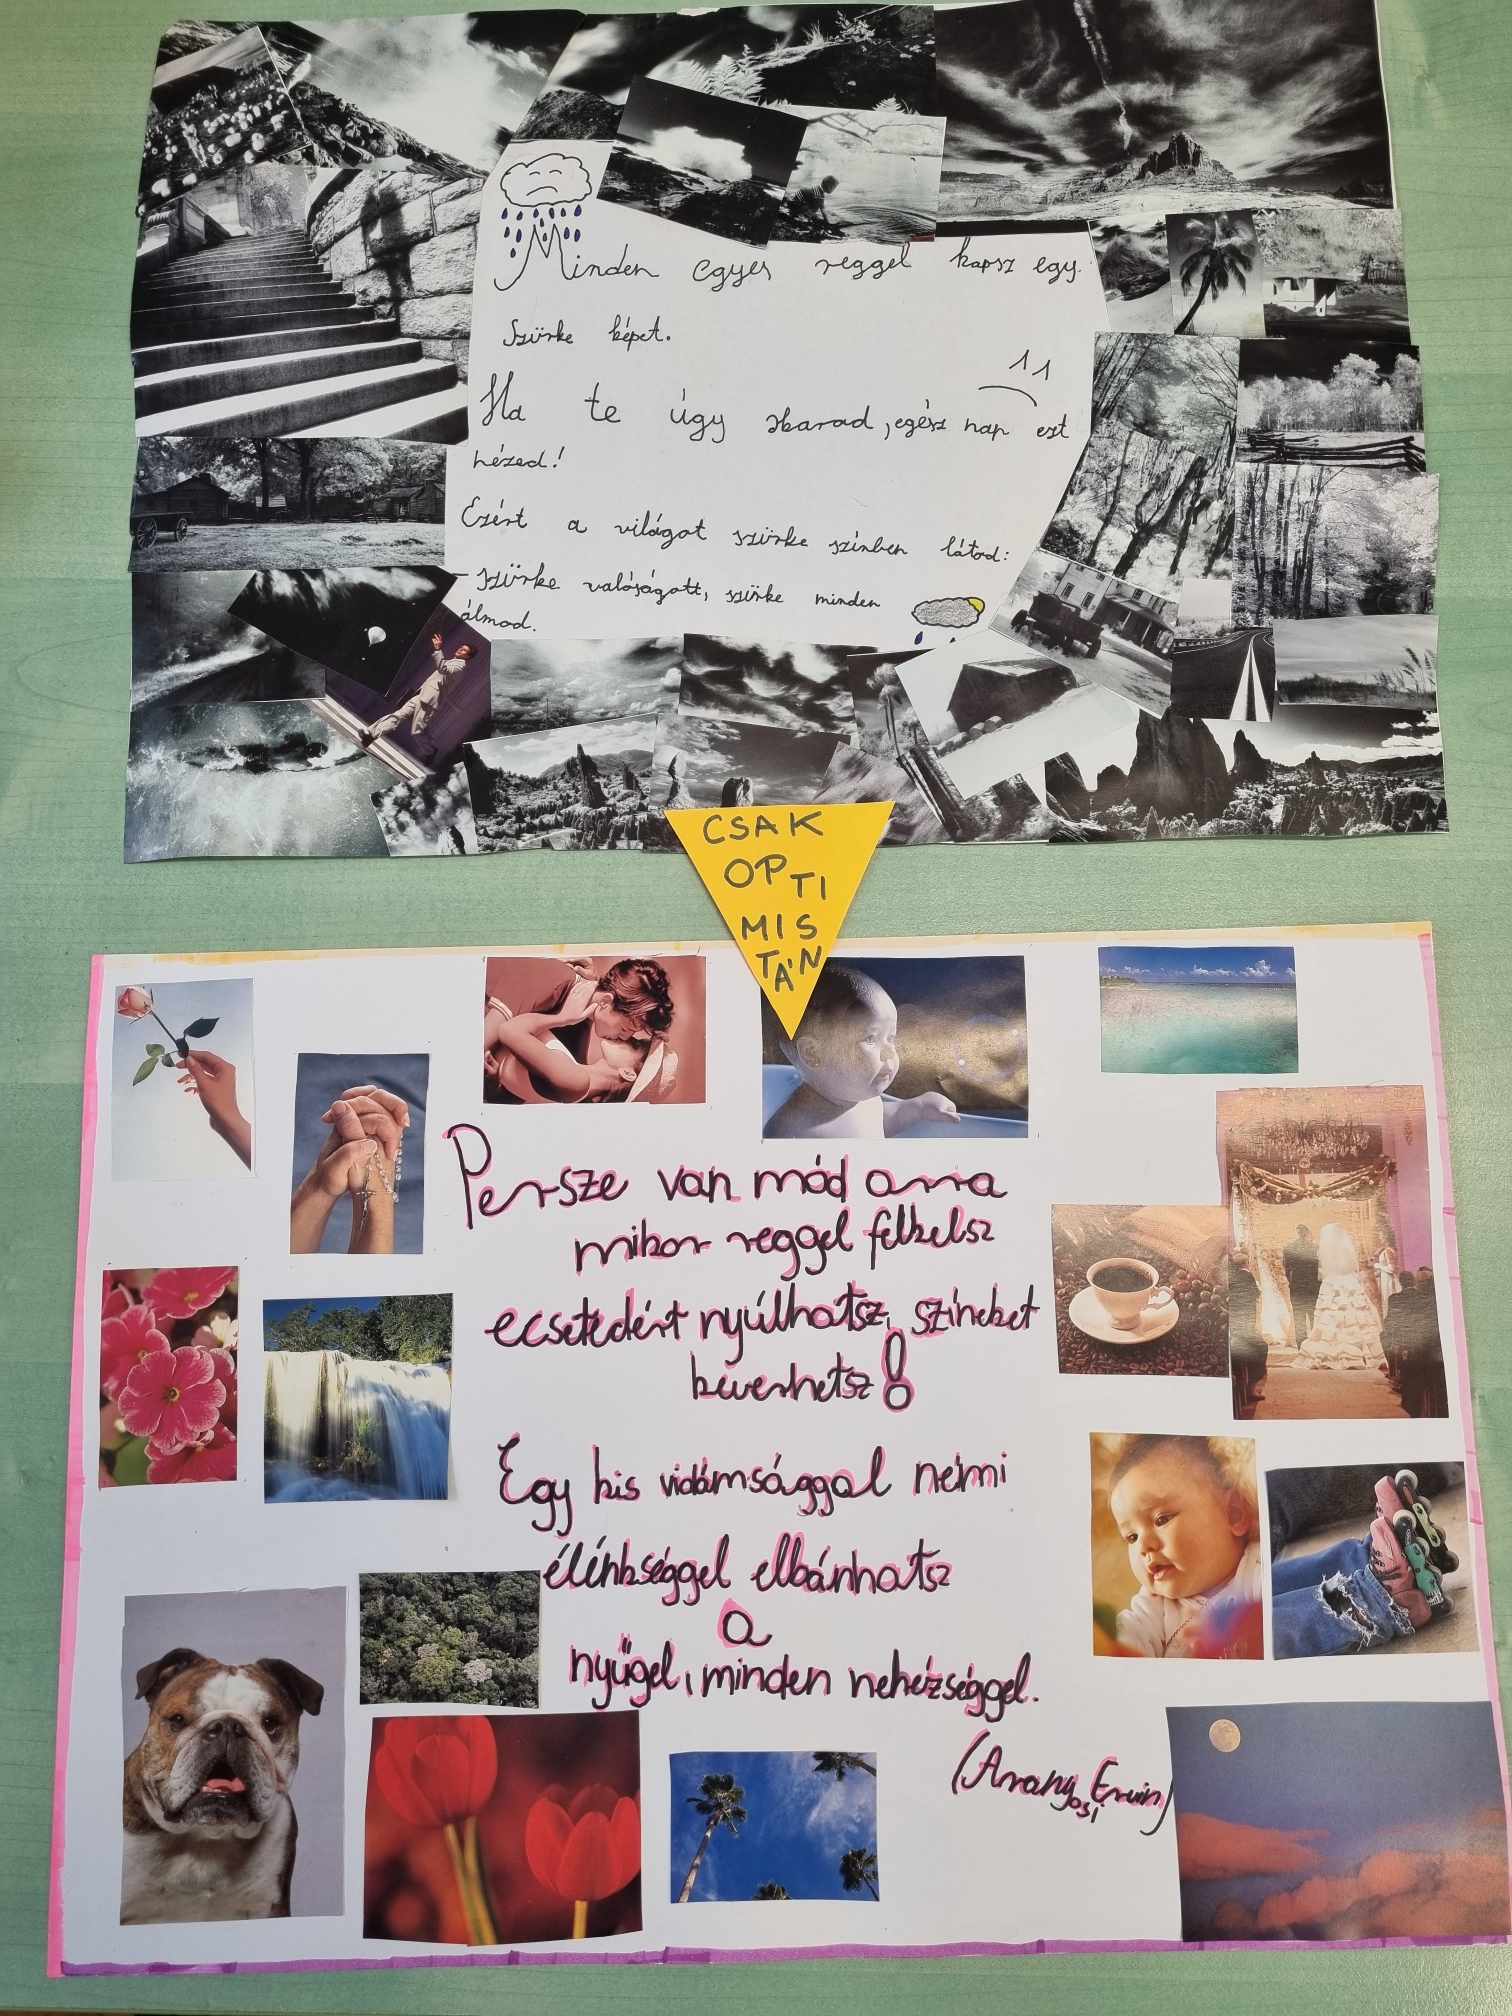 Minden egyes reggel kapsz egy
szürke képet.
Ha te úgy akarad, egész nap ezt
nézed!
Ezért a világot szürke színben látod:
szürke valóságott, szürke minden
álmod.
CSAK
OPTI
MIS
TÁN
Persze van mód arra
mikor reggel felkelsz
ecsetedért nyúlhatsz, színeket
keverhetsz!
Egy kis vidámsággal némi
élénkséggel elbánhatsz
a
nyűgel, minden nehézséggel.
(Aranyosi Ervin)